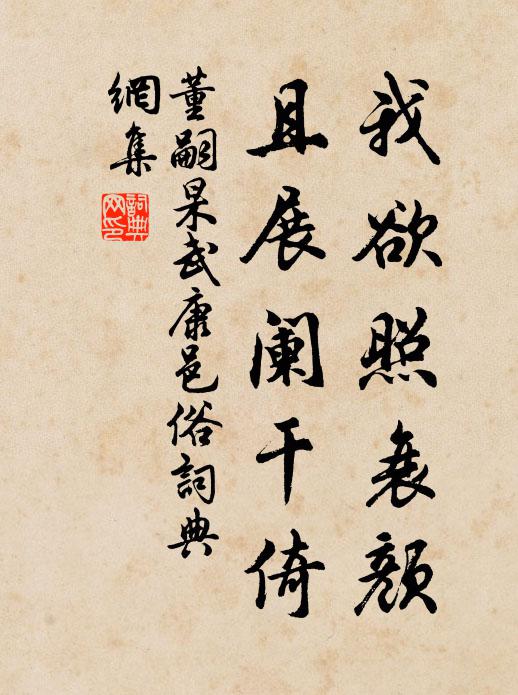 我欲照衰顔
且展阑干倚
董嗣杲武康邑俗詞典
網集
詞典
网印